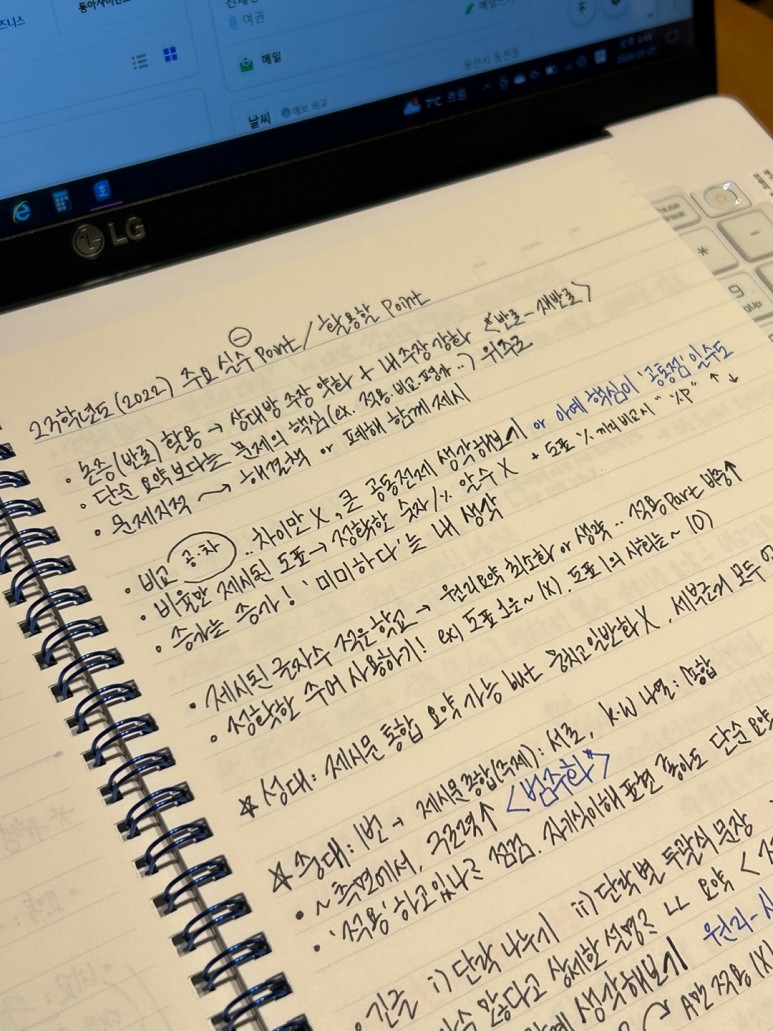 즈니스
동아사이언스
여권
메일
날씨
7°C 흐림
LG
23학년도(2022) 주요 실수 Point / 활용할 Point
• 논증(반론) 활용 → 상대방 주장 약화 + 내 주장 강화 <반론-재반론>
• 단순 요약보다는 문제의 핵심(ex. 적용·비교·평가..) 위주로
• 문제지적 → 해결책 or 폐해 함께 제시
• 비교 공·차 .. 차이만 X, 큰 공동전제 생각해보기 or 아예 핵심이 '공통점'일수도
• 비율만 제시된 도표 → 정확한 숫자/% 알수 X + 도표 % 끼리 비교시 "%P" ↑↓
• 증가는 증가! '미미하다'는 내 생각
• 제시된 글자수 적은 학교 → 원리요약 최소화 or 생략.. 적용Part 비중↑
• 정확한 주어 사용하기! ex) 도표 1은~ (X). 도표 1의 사회는~ (O)
☆ 성대: 제시문 통합 요약 가능 but 뭉치고 일반화 X, 세부근거 모두
☆ 숭대: 1번 → 제시문 종합(주제): 서론, K.W 나열:
• ~측면에서, 구조력↑ <"범주화">
• '적용'하고있나 점검. 자기식이해 표현 좋아도 단순 요약
• 긴글 i) 단락 나누기 ii) 단락별 두괄식 문장
않다고 상세한 설명 요약 <
생각해보기 원리-
A만 적용(X)